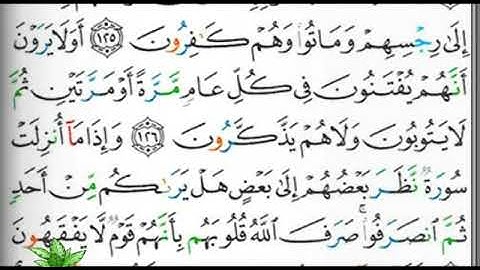 إِلَىٰ رِجْسِهِمْ وَمَاتُوا۟ وَهُمْ كَـٰفِرُونَ ١٢٥ أَوَلَا يَرَوْنَ
أَنَّهُمْ يُفْتَنُونَ فِى كُلِّ عَامٍ مَّرَّةً أَوْ مَرَّتَيْنِ ثُمَّ
لَا يَتُوبُونَ وَلَا هُمْ يَذَّكَّرُونَ ١٢٦ وَإِذَا مَآ أُنزِلَتْ
سُورَةٌ نَّظَرَ بَعْضُهُمْ إِلَىٰ بَعْضٍ هَلْ يَرَىٰكُم مِّنْ أَحَدٍ
ثُمَّ ٱنصَرَفُوا۟ ۚ صَرَفَ ٱللَّهُ قُلُوبَهُم بِأَنَّهُمْ قَوْمٌ لَّا يَفْقَهُونَ